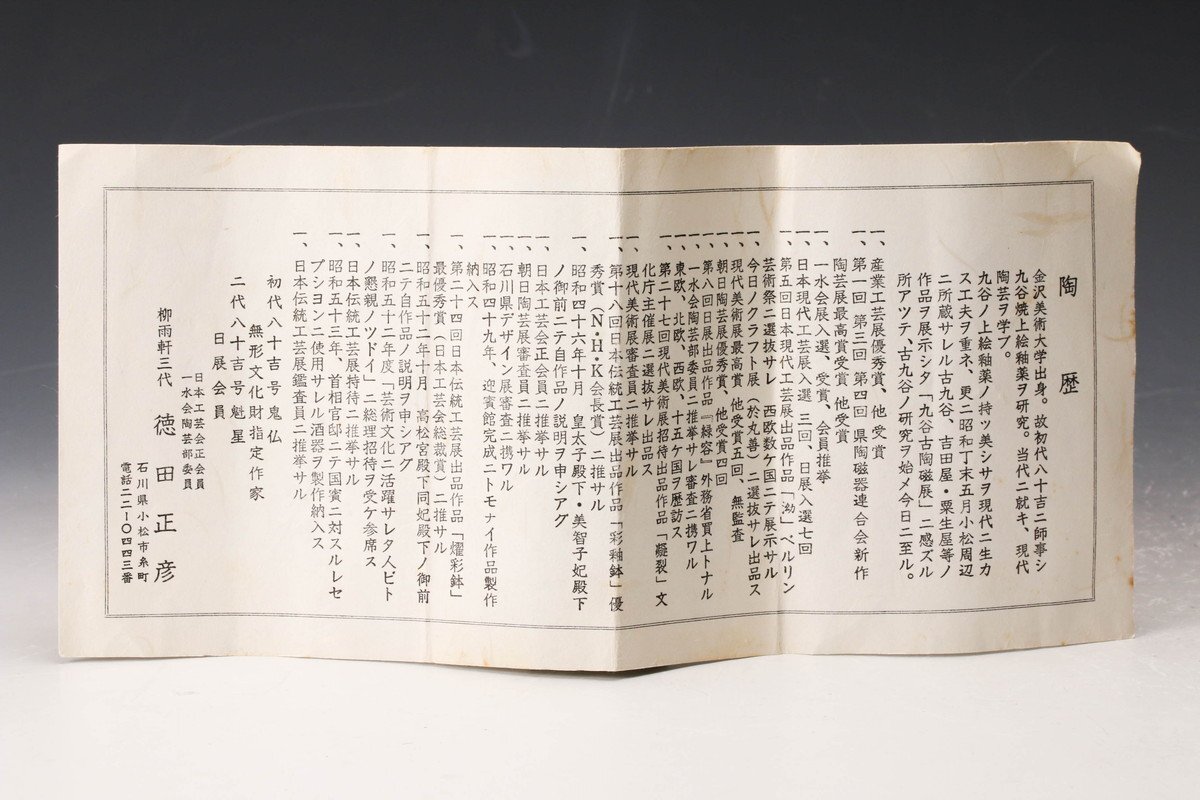 陶歴
金沢美術大学出身。故初代八十吉ニ師事シ
九谷焼上絵釉薬ヲ研究。当代ニ就キ、現代
陶芸ヲ学ブ。
九谷ノ上絵釉薬ノ持ツ美シサヲ現代ニ生カ
ス工夫ヲ重ネ、更ニ昭和丁未五月小松周辺
ニ所蔵サレル古九谷、吉田屋・粟生屋等ノ
作品ヲ展示シタ「九谷古陶磁展」ニ感ズル
所アツテ、古九谷ノ研究ヲ始メ今日ニ至ル。
一、産業工芸展優秀賞、他受賞
一、第一回 第三回 第四回県陶磁器連合会新作
陶芸展最高賞受賞 他受賞
一、一水会展入選、受賞、会員推挙
一、日本現代工芸展入選 三回、日展入選七回
一、第五回日本現代工芸展出品作品「泑」ベルリン
芸術祭ニ選抜サレ 西欧数ケ国ニテ展示サル
一、今日ノクラフト展（於丸善）ニ選抜サレ出品ス
一、現代美術展最高賞 他受賞五回、無監査
一、朝日陶芸展優秀賞、他受賞四回
一、第八回日展出品作品『緑容』外務省買上トナル
一、一水会陶芸部委員ニ推挙サレ審査ニ携ワル
一、東欧、北欧、西欧、十五ケ国ヲ歴訪ス
一、第二十七回現代美術展招待出品作品「凝裂」文
化庁主催展ニ選抜サレ出品ス
一、現代美術展審査員ニ推挙サル
一、第十八回日本伝統工芸展出品作品「彩釉鉢」優
秀賞（N・H・K会長賞）ニ推サル
一、昭和四十六年十月 皇太子殿下・美智子妃殿下
ノ御前ニテ自作品ノ説明ヲ申シアグ
一、日本工芸会正会員ニ推挙サル
一、朝日陶芸展審査員ニ推挙サル
一、石川県デザイン展審査ニ携ワル
一、昭和四十九年、迎賓館完成ニトモナイ作品製作
納入ス
一、第二十四回日本伝統工芸展出品作品「燿彩鉢」
最優秀賞（日本工芸会総裁賞）ニ推サル
一、昭和五十二年十月 高松宮殿下同妃殿下ノ御前
ニテ自作品ノ説明ヲ申シアグ
一、昭和五十二年度「芸術文化ニ活躍サレタ人ビト
ノ懇親ノツドイ」ニ総理招待ヲ受ケ参席ス
一、日本伝統工芸展特待ニ推挙サル
一、昭和五十三年、首相官邸ニテ国賓ニ対スルレセ
プシヨンニ使用サレル酒器ヲ製作納入ス
一、日本伝統工芸展鑑査員ニ推挙サル
初代八十吉号鬼仏
無形文化財指定作家
二代八十吉号魁星
日展会員
日本工芸会正会員
一水会陶芸部委員
柳雨軒三代 徳田正彦
石川県小松市糸町
電話二二-〇四四三番